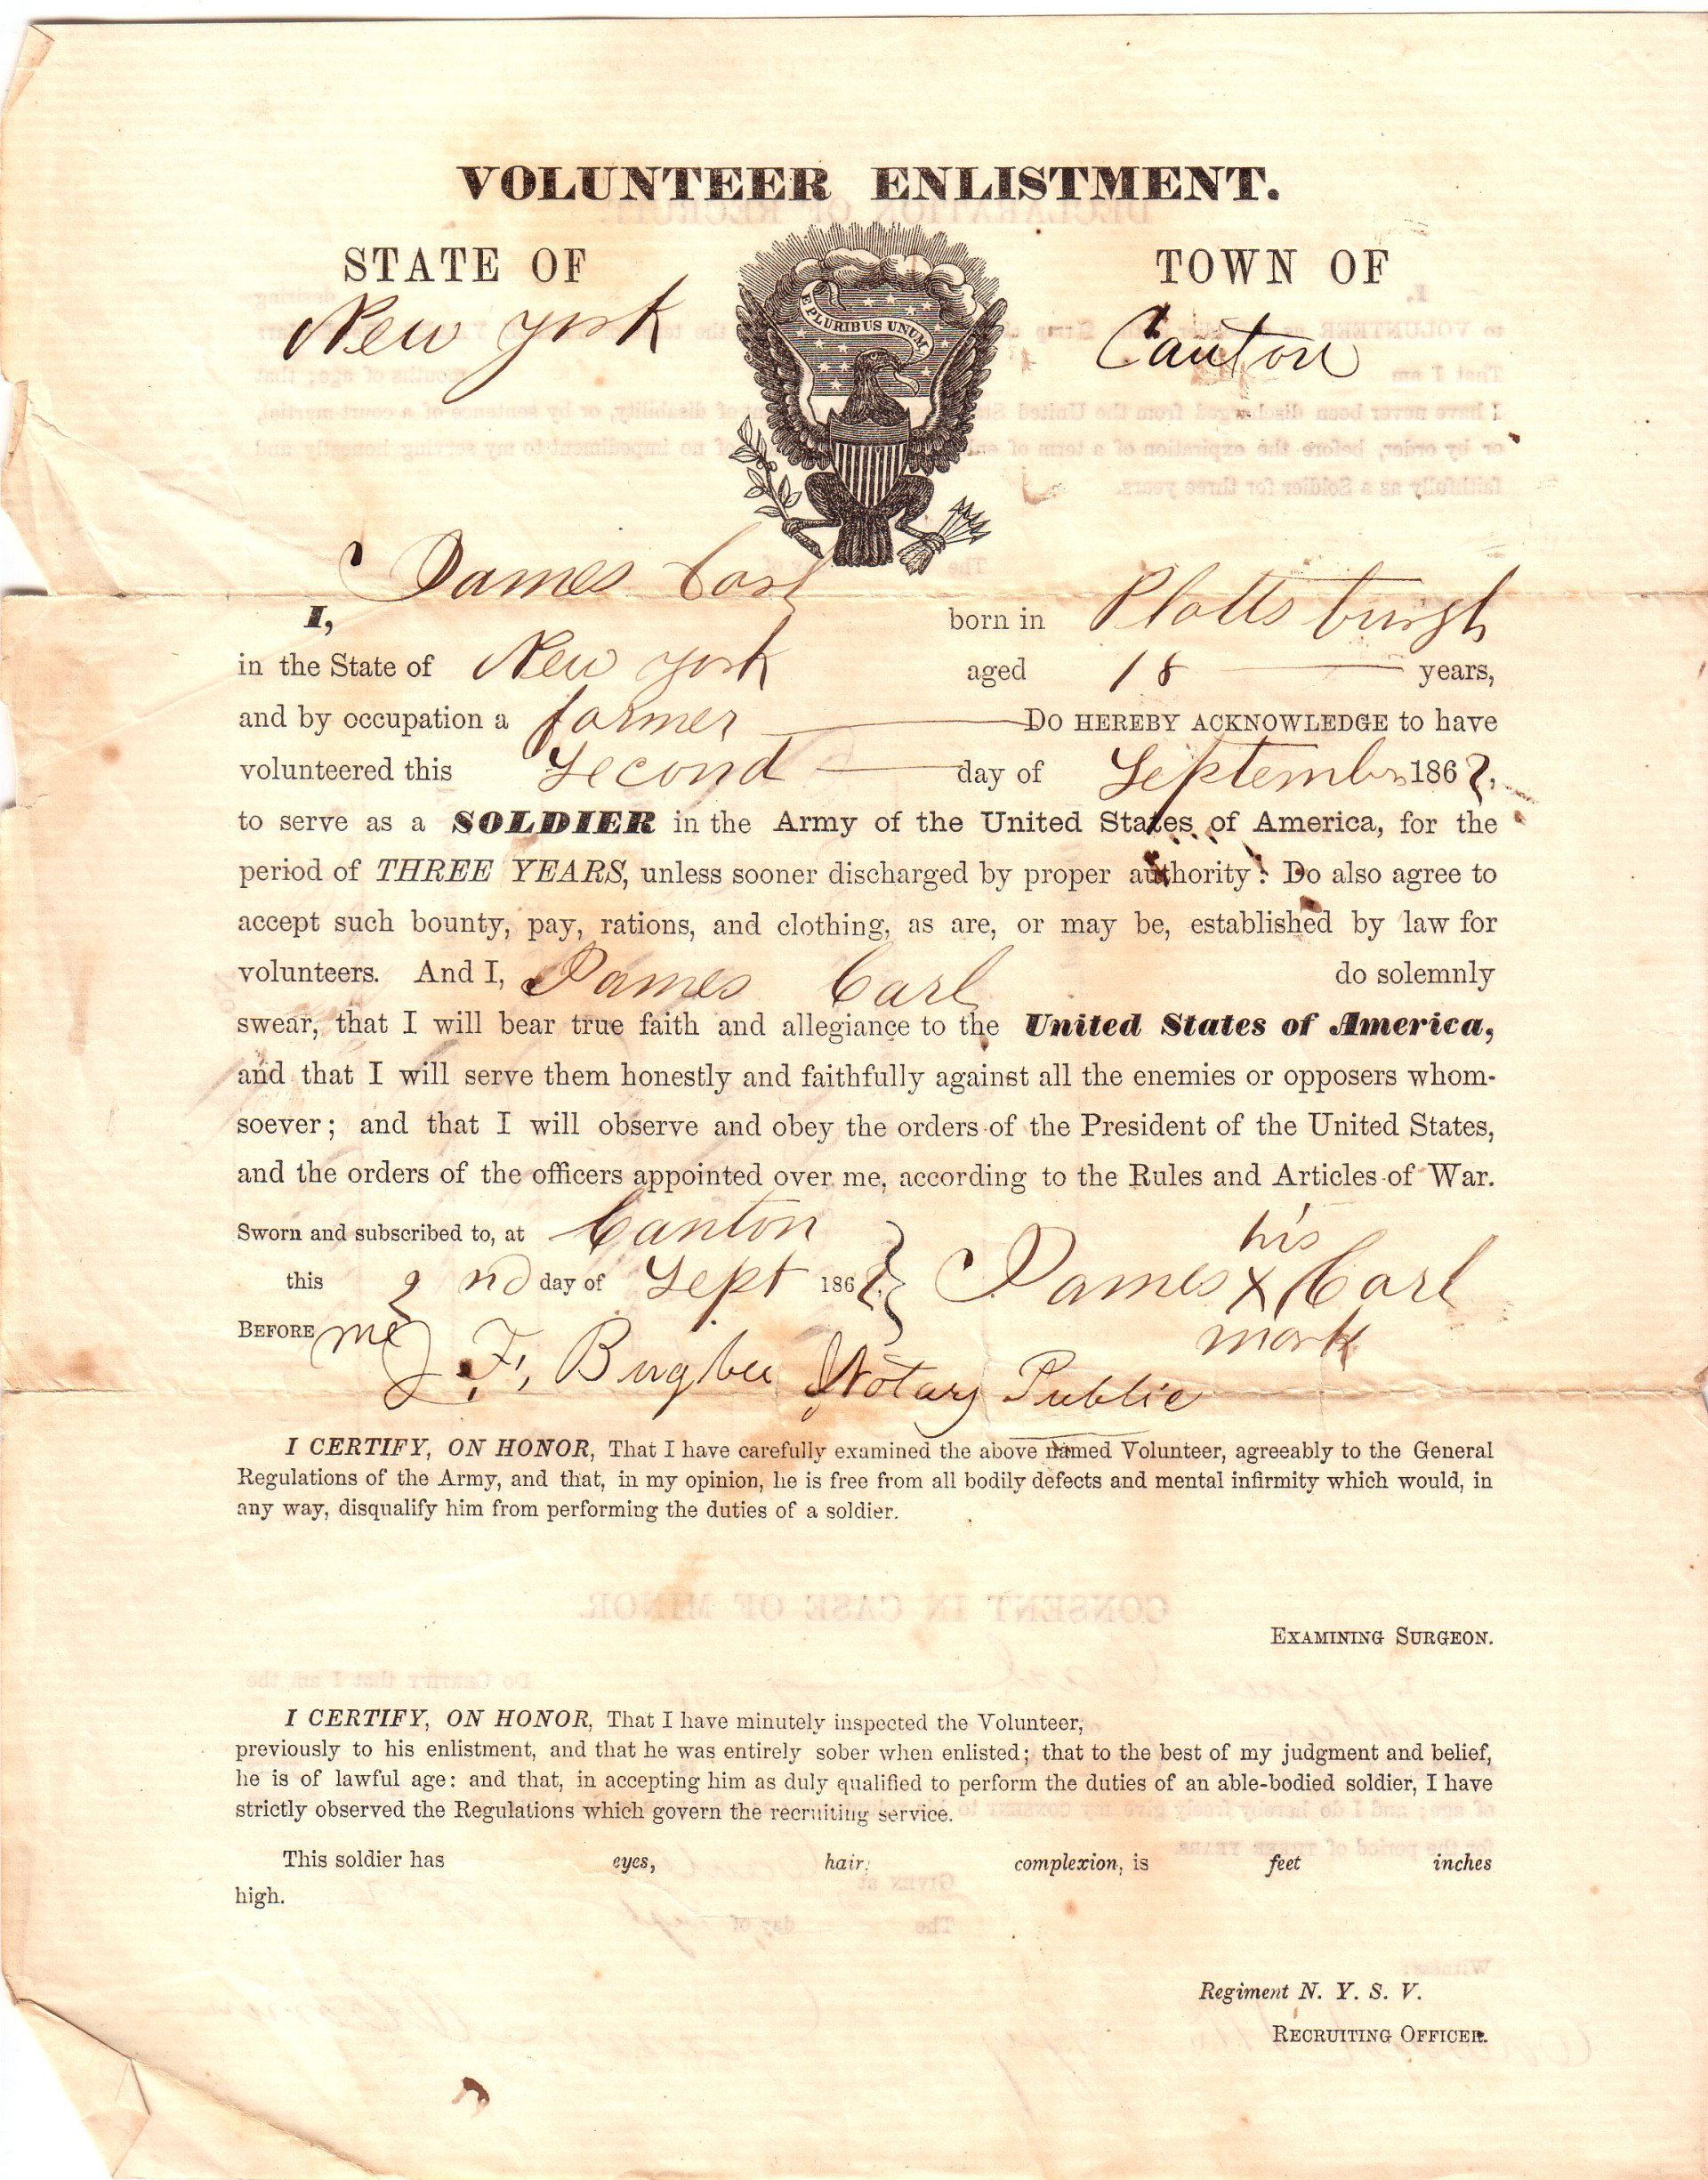 VOLUNTEER ENLISTMENT.
STATE OF TOWN OF
New York Canton
E PLURIBUS UNUM
I, James Carl born in Plattsburgh
in the State of New York aged 18 years,
and by occupation a farmer DO HEREBY ACKNOWLEDGE to have
volunteered this Second day of September 1862,
to serve as a SOLDIER in the Army of the United States of America, for the
period of THREE YEARS, unless sooner discharged by proper authority: Do also agree to
accept such bounty, pay, rations, and clothing, as are, or may be, established by law for
volunteers. And I, James Carl do solemnly
swear, that I will bear true faith and allegiance to the United States of America,
and that I will serve them honestly and faithfully against all the enemies or opposers whom-
soever; and that I will observe and obey the orders of the President of the United States,
and the orders of the officers appointed over me, according to the Rules and Articles of War.
Sworn and subscribed to, at Canton his
this 2nd day of Sept 1862 James x Carl
BEFORE me mark
F. Bugbee Notary Public
I CERTIFY, ON HONOR, That I have carefully examined the above named Volunteer, agreeably to the General
Regulations of the Army, and that, in my opinion, he is free from all bodily defects and mental infirmity which would, in
any way, disqualify him from performing the duties of a soldier.
EXAMINING SURGEON.
I CERTIFY, ON HONOR, That I have minutely inspected the Volunteer,
previously to his enlistment, and that he was entirely sober when enlisted; that to the best of my judgment and belief,
he is of lawful age: and that, in accepting him as duly qualified to perform the duties of an able-bodied soldier, I have
strictly observed the Regulations which govern the recruiting service.
This soldier has eyes, hair, complexion, is feet inches
high.
Regiment N. Y. S. V.
RECRUITING OFFICER.